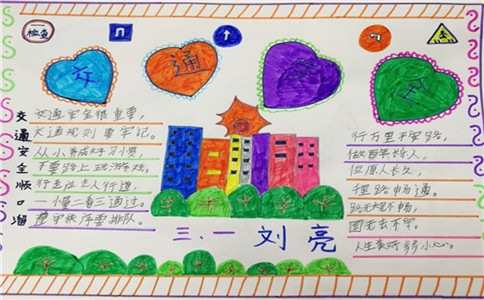 检查
交
通
安
全
交通安全顺口溜
交通安全很重要,
交通规则要牢记。
从小养成好习惯,
不要路上玩游戏,
行走 走人行道,
一慢二看三通过。
遵守秩序要排队。
行万里 路,
做百年 人,
但原人长久,
路 畅通。
路无规不畅,
国无法不宁。
人生美好 小心。
三.一 刘亮